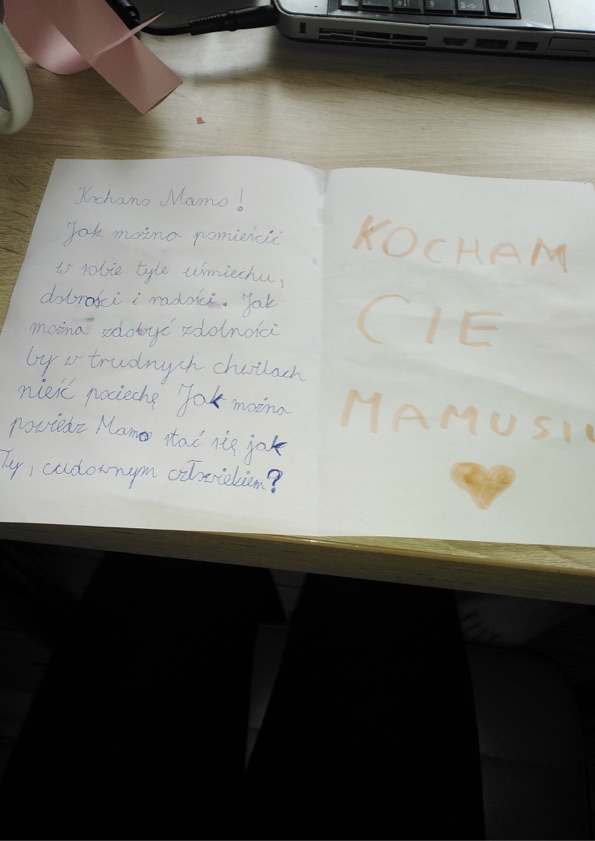 Kochana Mamo!
Jak można pomieścić
w sobie tyle uśmiechu,
dobrości i radości. Jak
można zdobyć zdolności
by w trudnych chwilach
nieść pociechę Jak można
powiedz Mamo stać się jak
Ty, cudownym człowiekiem?
KOCHAM
CIE
MAMUSIU